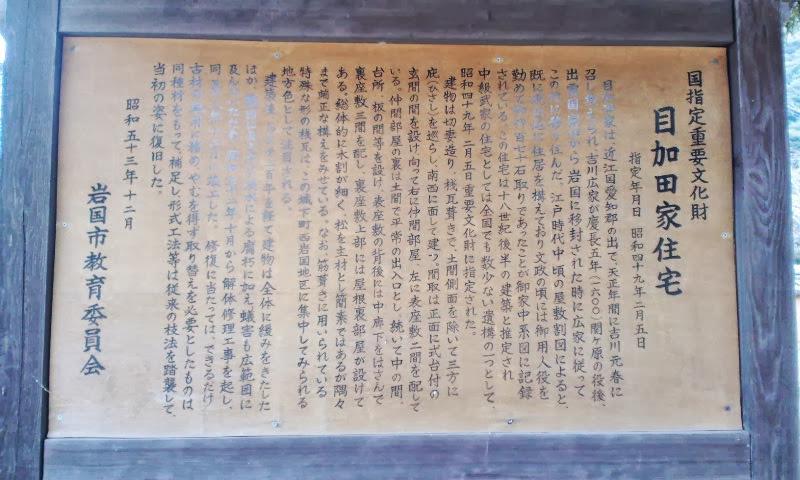 国指定重要文化財
目加田家住宅
指定年月日 昭和四十九年二月五日
目加田家は、近江国愛知郡の出で、天正年間に吉川元春に
召し抱えられ、吉川広家が慶長五年(一六〇〇)関ヶ原の役後、
出雲国富田から岩国に移封された時に広家に従って
この地に移り住んだ。江戸時代中頃の屋敷割図によると、
既に現在地に住居を構えており文政の頃には御用人役を
勤めて 百七十石取りであったことが御家中系図に記録
されている。この住宅は十八世紀後半の建築と推定され
中級武家の住宅としては全国でも数少ない遺構の一つとして、
昭和四十九年二月五日重要文化財に指定された。
建物は切妻造り、桟瓦葺きで、土間側面を除いて三方に
庇(ひさし)を巡らし、南西に面して建つ。間取は正面に式台付の
玄関の間を設け向って右に仲間部屋、左に表座敷二間を配して
いる。仲間部屋の裏は土間で平常の出入口とし、続いて中の間、
台所、板の間等を設け、表座敷の背後には中廊下をはさんで
裏座敷三間を配し、裏座敷上部には屋根裏部屋が設けて
ある。総体的に木割が細く、松を主材とし簡素ではあるが隅々
まで端正な構えをみせている。なお、筋葺きに用いられている
特殊な形の桟瓦は、この城下町西岩国地区に集中してみられる
地方色として注目される。
建築 百年を経て建物は全体に緩みをきたした
ほか、 による腐朽に加え蟻害も広範囲に
及んで 二年十月から解体修理工事を起し、
同 竣工した。修復に当たっては、できるだけ
古材の再用に務め、やむを得ず取り替えを必要としたものは
同種材をもって、補足し形式工法等は従来の技法を踏襲して、
当初の姿に復旧した。
昭和五十三年十二月
岩国市教育委員会